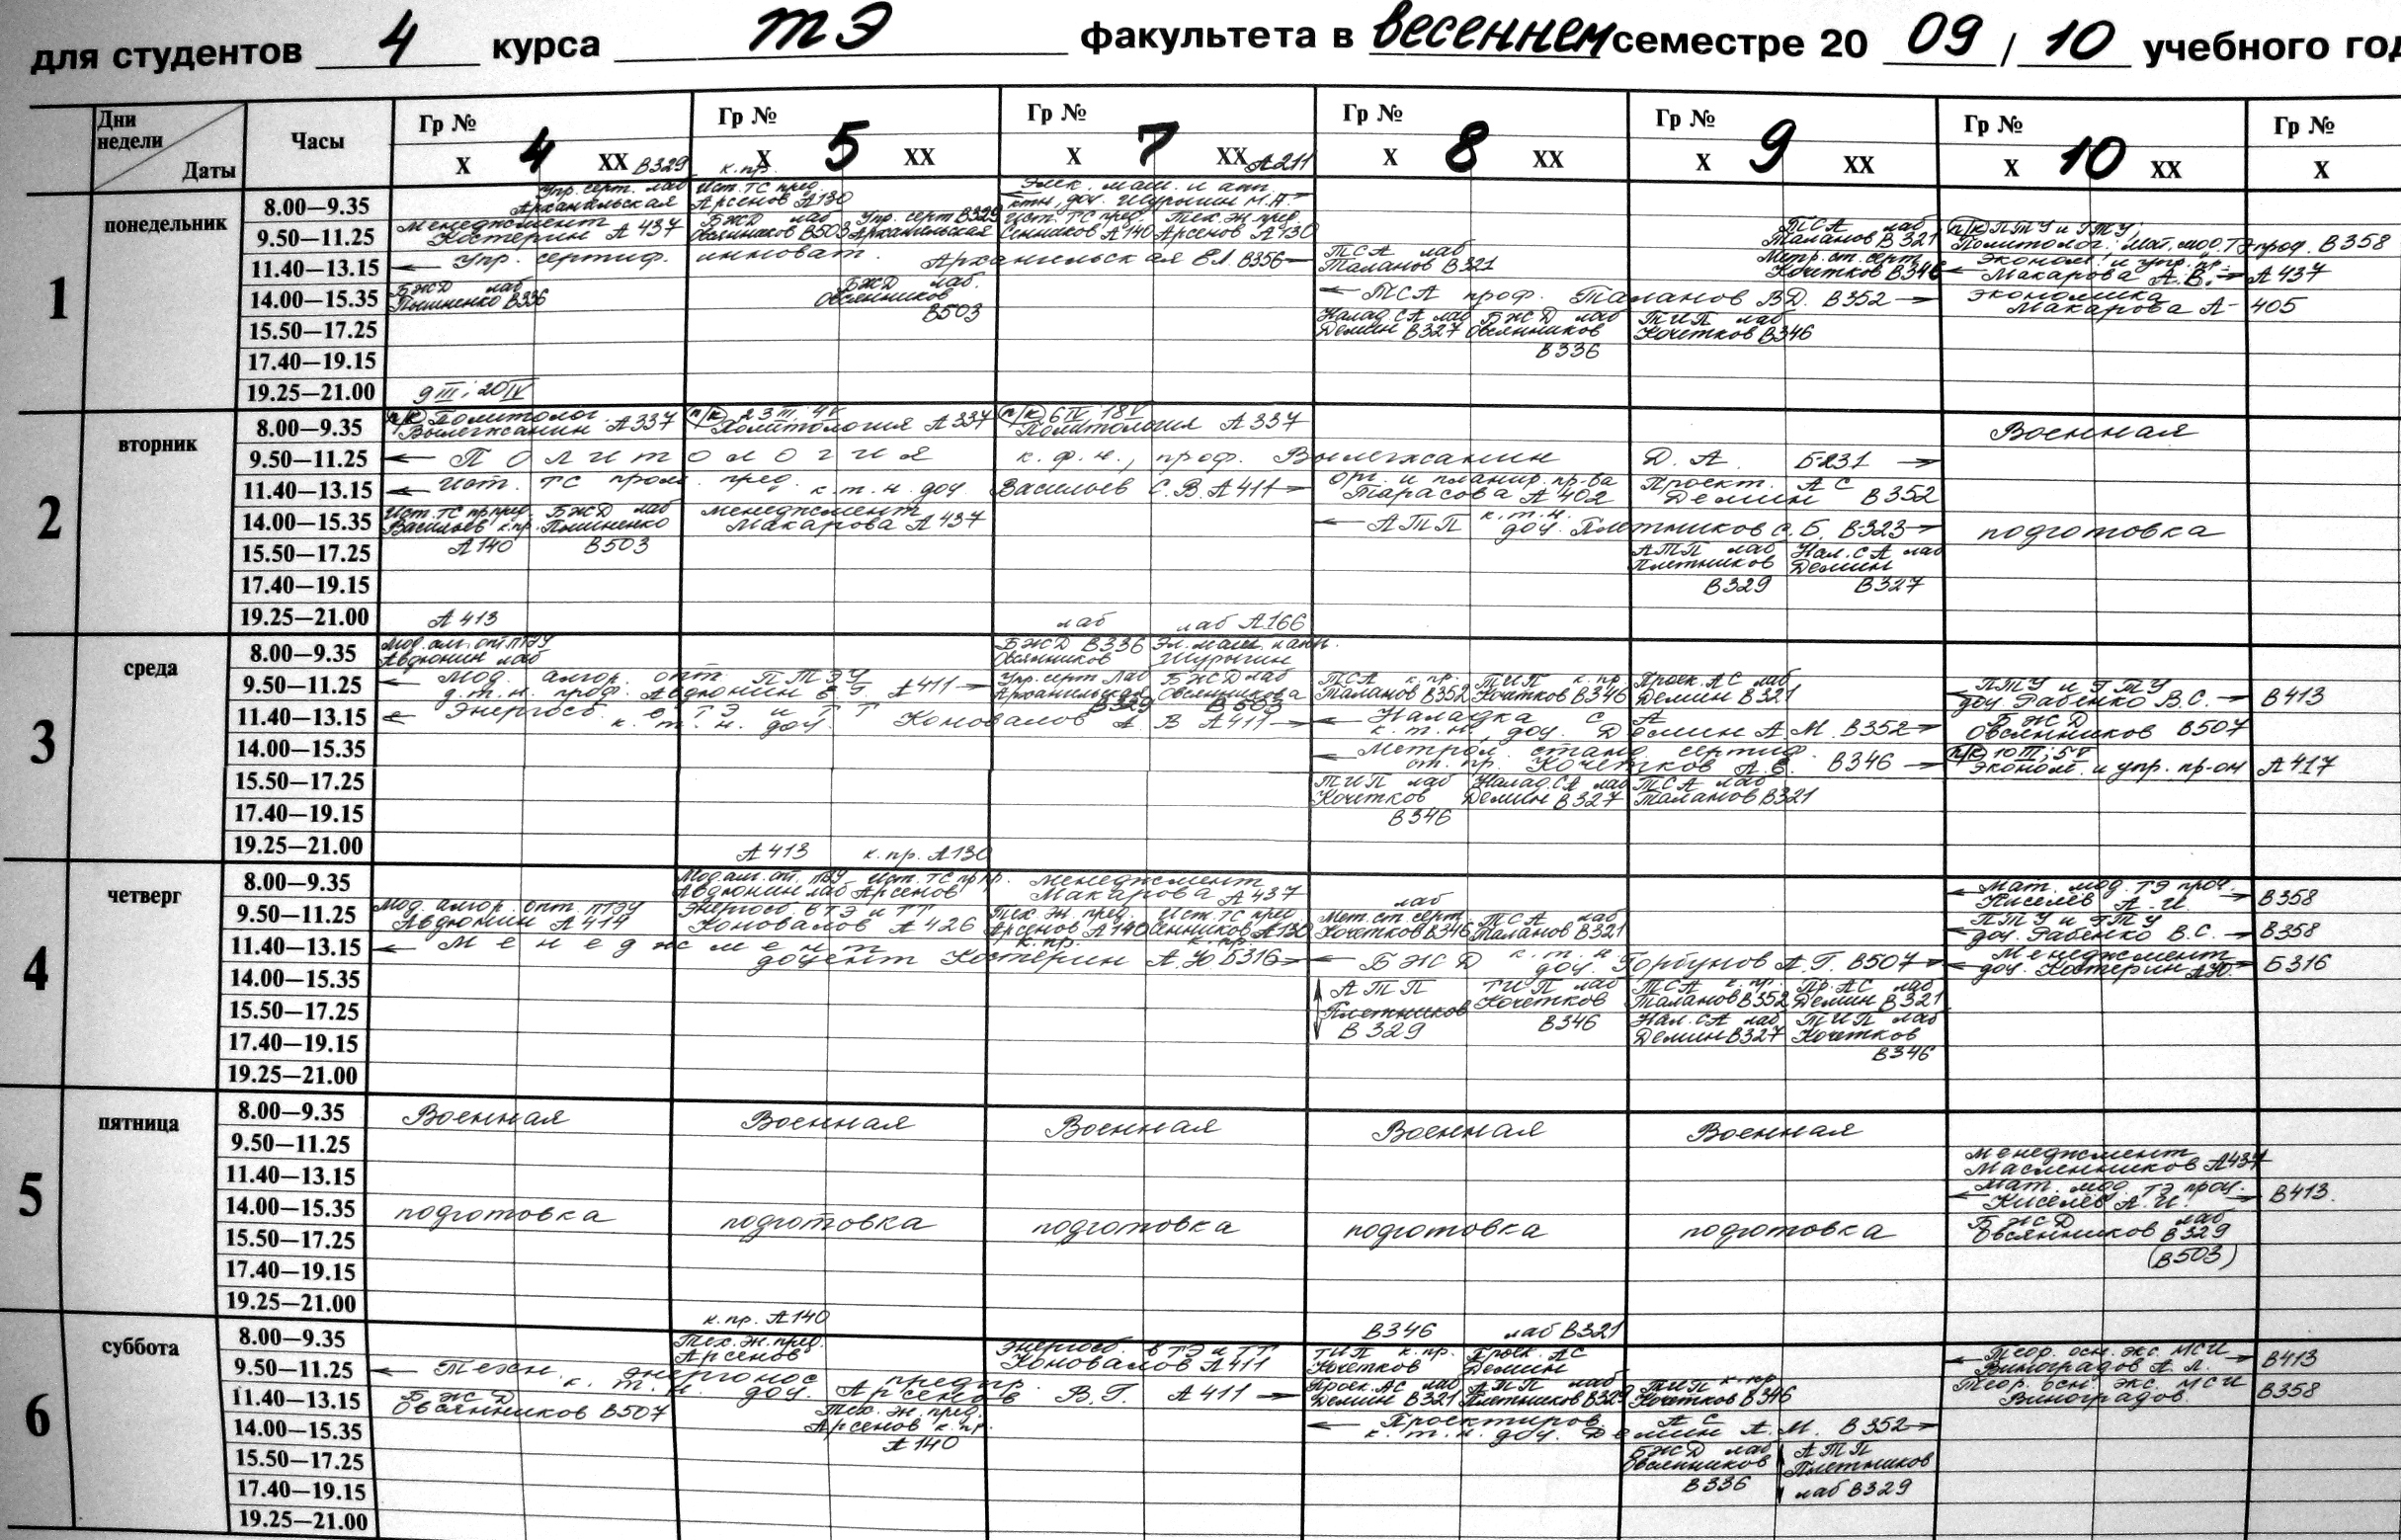 для студентов 4 курса ТЭ факультета в весеннем семестре 20 09 / 10 учебного год
Дни недели Даты Часы Гр № 4 Гр № 5 Гр № 7 Гр № 8 Гр № 9 Гр № 10 Гр №
X XX В329 к.пр. X XX X XX А211 X XX X XX X XX X
1 понедельник
8.00—9.35 Упр. серт. лаб Архангельская Ист. ТС пред. Арсенов А130 Элек. маш. и апп. ктн, доц. Шурыгин М.Н.
9.50—11.25 Менеджмент Костерин А 437 БЖД лаб Овсянников В503 Упр. серт В329 Архангельская Ист. ТС пред. Сенников А140 Тех. эн. пред. Арсенов А130 ТСА лаб Таланов В321 п/к ПТУ и ГТУ, Политолог. Мат. мод. ТЭ проф. В358
11.40—13.15 Упр. сертиф. инноват. Архангельская Е.Л. В356 ТСА лаб Таланов В321 Метр. ст. серт Кочетков В346 Эконом. и упр. пр. Макарова А.В. А437
14.00—15.35 БЖД лаб Пышненко В336 БЖД лаб. Овсянников В503 ТСА проф. Таланов В.Д. В352 экономика Макарова А-405
15.50—17.25 Налад. СА лаб Демин В327 БЖД лаб Овсянников В336 ТИП лаб Кочетков В346
17.40—19.15
19.25—21.00 9 III; 20 IV
2 вторник
8.00—9.35 п/к Политолог Вылегжанин А337 п/к 23 III; 4 V Политология А337 п/к 6 IV; 18 V Политология А337 Военная
9.50—11.25 Политология к.ф.н., проф. Вылегжанин Д.А. Б231
11.40—13.15 Ист. ТС пром. пред. к.т.н. доц Васильев С.В. А411 Орг. и планир. пр-ва Тарасова А402 Проект. АС Демин В352
14.00—15.35 Ист. ТС пр пред. Васильев к.пр. А140 БЖД лаб Пышненко В503 менеджмент Макарова А437 АТП к.т.н. доц. Плетников С.Б. В323 подготовка
15.50—17.25 АТП лаб Плетников В329 Нал. СА лаб Демин В327
17.40—19.15
19.25—21.00 А413 лаб лаб А166
3 среда
8.00—9.35 Мод. алг. опт ПТЭУ Авдюнин лаб БЖД В336 Овсянников Эл. маш. и апп. Шурыгин
9.50—11.25 Мод. алгор. опт. ПТЭУ д.т.н. проф. Авдюнин Е.Г. А411 Упр. серт Лаб Архангельская В329 БЖД лаб Овсянникова В503 ТСА к.пр. Таланов В352 ТИП к.пр Кочетков В346 Проек. АС лаб Демин В321 ПТУ и ГТУ доц. Рабенко В.С. В413
11.40—13.15 Энергосб. в ТЭ и ТТ к.т.н. доц. Коновалов А.В А411 Наладка СА к.т.н., доц. Демин А.М. В352 БЖД Овсянников В507
14.00—15.35 Метрол. станд. сертиф. ст. пр. Кочетков А.Е. В346 п/к 10 III; 5 V эконом. и упр. пр-ом А417
15.50—17.25 ТИП лаб Кочетков В346 Налад. СА лаб Демин В327 ТСА лаб Таланов В321
17.40—19.15
19.25—21.00 А413 к.пр. А130
4 четверг
8.00—9.35 Мод. алг. оп. ПТЭУ Авдюнин лаб Ист. ТС пр пр. Арсенов менеджмент Макарова А437 Мат. мод. ТЭ проц. Киселёв А.И. В358
9.50—11.25 Мод. алгор. опт. ПТЭУ Авдюнин А414 Энергосб в ТЭ и ТТ Коновалов А426 Тех. эн. пред. Арсенов А140 к.пр. Ист. ТС пред Сенников А130 к.пр. лаб Мет. ст. серт Кочетков В346 ТСА лаб Таланов В321 ПТУ и ГТУ доц. Рабенко В.С. В358
11.40—13.15 Менеджмент доцент Костерин А.Ю. Б316 БЖД к.т.н доц. Горбунов А.Г. В507 Менеджмент доц. Костерин А.Ю. Б316
14.00—15.35 АТП Плетников В329 ТИП лаб Кочетков В346 ТСА к.пр. Таланов В352 Пр. АС лаб Демин В321
15.50—17.25 Нал. СА лаб Демин В327 ТИП лаб Кочетков В346
17.40—19.15
19.25—21.00
5 пятница
8.00—9.35 Военная Военная Военная Военная Военная
9.50—11.25
11.40—13.15 менеджмент Масленников А437
14.00—15.35 подготовка подготовка подготовка подготовка подготовка Мат. мод. ТЭ проц. Киселёв А.И. В413.
15.50—17.25 БЖД лаб Овсянников В329 (В503)
17.40—19.15
19.25—21.00 к.пр. А140
6 суббота
8.00—9.35 Тех. эн. пред. Арсенов Энергосб. в ТЭ и ТТ Коновалов А411 В346 ТИП к.пр. Кочетков лаб В321 Проек. АС Демин Теор. осн. экс. МСИ Виноградов А.Л. В413
9.50—11.25 Техн. энергонос. предпр. к.т.н. доц. Арсенов В.Г. А411 Проек. АС лаб Демин В321 АТП лаб Плетников В329 ТИП к.пр Кочетков В346 Теор. осн. экс. МСИ Виноградов В358
11.40—13.15 БЖД Овсянников В507 Тех. эн. пред. Арсенов к.пр. А140 Проектиров. АС к.т.н. доц. Демин А.М. В352
14.00—15.35
15.50—17.25 БЖД лаб Овсянников В336 АТП Плетников лаб В329
17.40—19.15
19.25—21.00